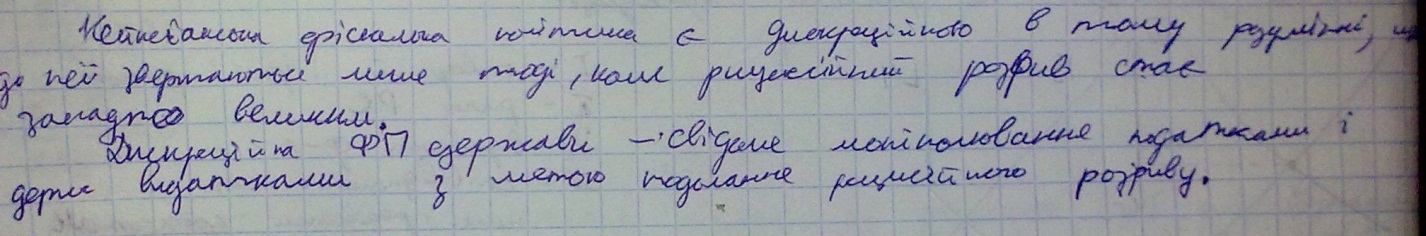 Кейнсіанська фіскальна політика є дискреційною в тому розумінні, що
до неї звертаються лише тоді, коли рецесійний розрив стає
занадто великим.
Дискреційна ФП держави – свідоме маніпулювання податками і
держ видатками з метою подолання рецесійного розриву.